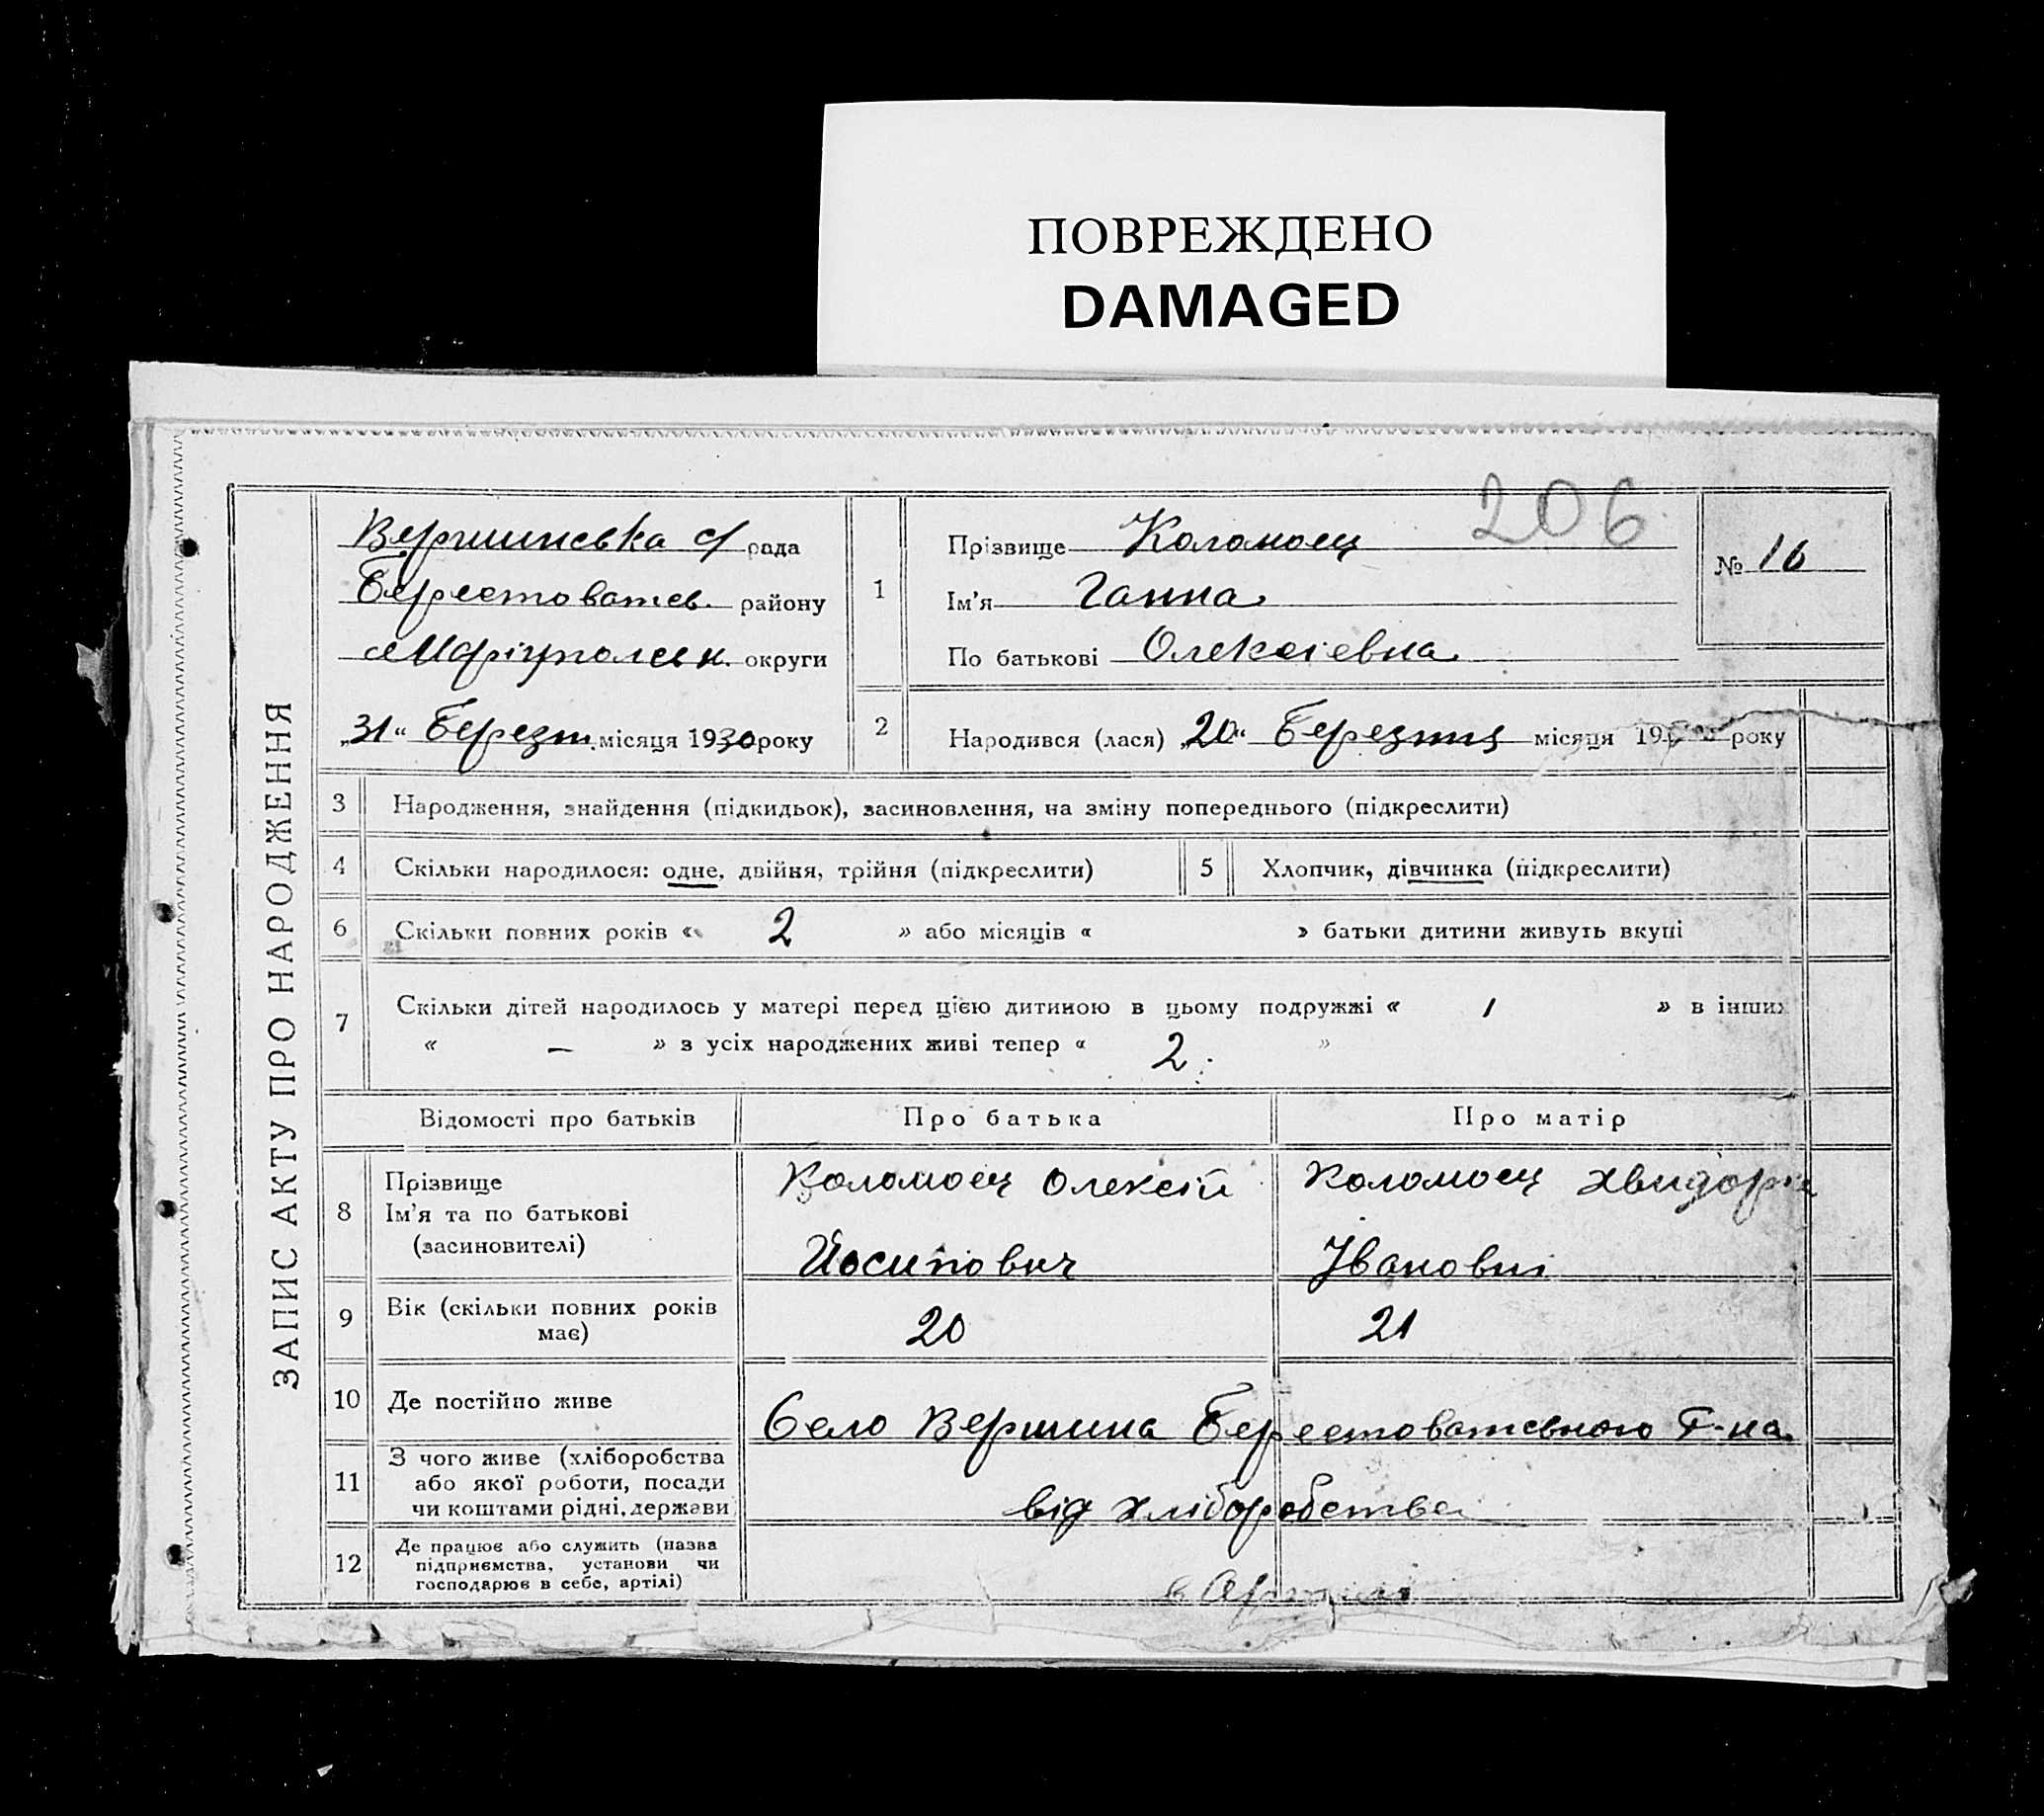 ПОВРЕЖДЕНО
DAMAGED
206
ЗАПИС АКТУ ПРО НАРОДЖЕННЯ
Вершинська с/рада
Берестоватсв. району
Маріупольськ. округи
„31“ Березн. місяця 1930 року
1
Прізвище Коломоец
Ім’я Ганна
По батькові Олексієвна
№ 16
2
Народився (лася) „20“ Березня місяця 19 року
3 Народження, знайдення (підкидьок), засиновлення, на зміну попереднього (підкреслити)
4 Скільки народилося: одне, двійня, трійня (підкреслити)
5 Хлопчик, дівчинка (підкреслити)
6 Скільки повних років « 2 » або місяців « » батьки дитини живуть вкупі
7 Скільки дітей народилось у матері перед цією дитиною в цьому подружжі « 1 » в інших
« — » з усіх народжених живі тепер « 2 »
Відомості про батьків Про батька Про матір
8 Прізвище
Ім’я та по батькові
(засиновителі)
Коломоец Олексій
Йосипович
Коломоец Хвидорка
Івановні
9 Вік (скільки повних років
має)
20 21
10 Де постійно живе
Село Вершина Берестоватсвного Р-на
11 З чого живе (хліборобства
або якої роботи, посади
чи коштами рідні, держави
від хліборобства
12 Де працює або служить (назва
підприємства, установи чи
господарює в себе, артілі)
в Артілі